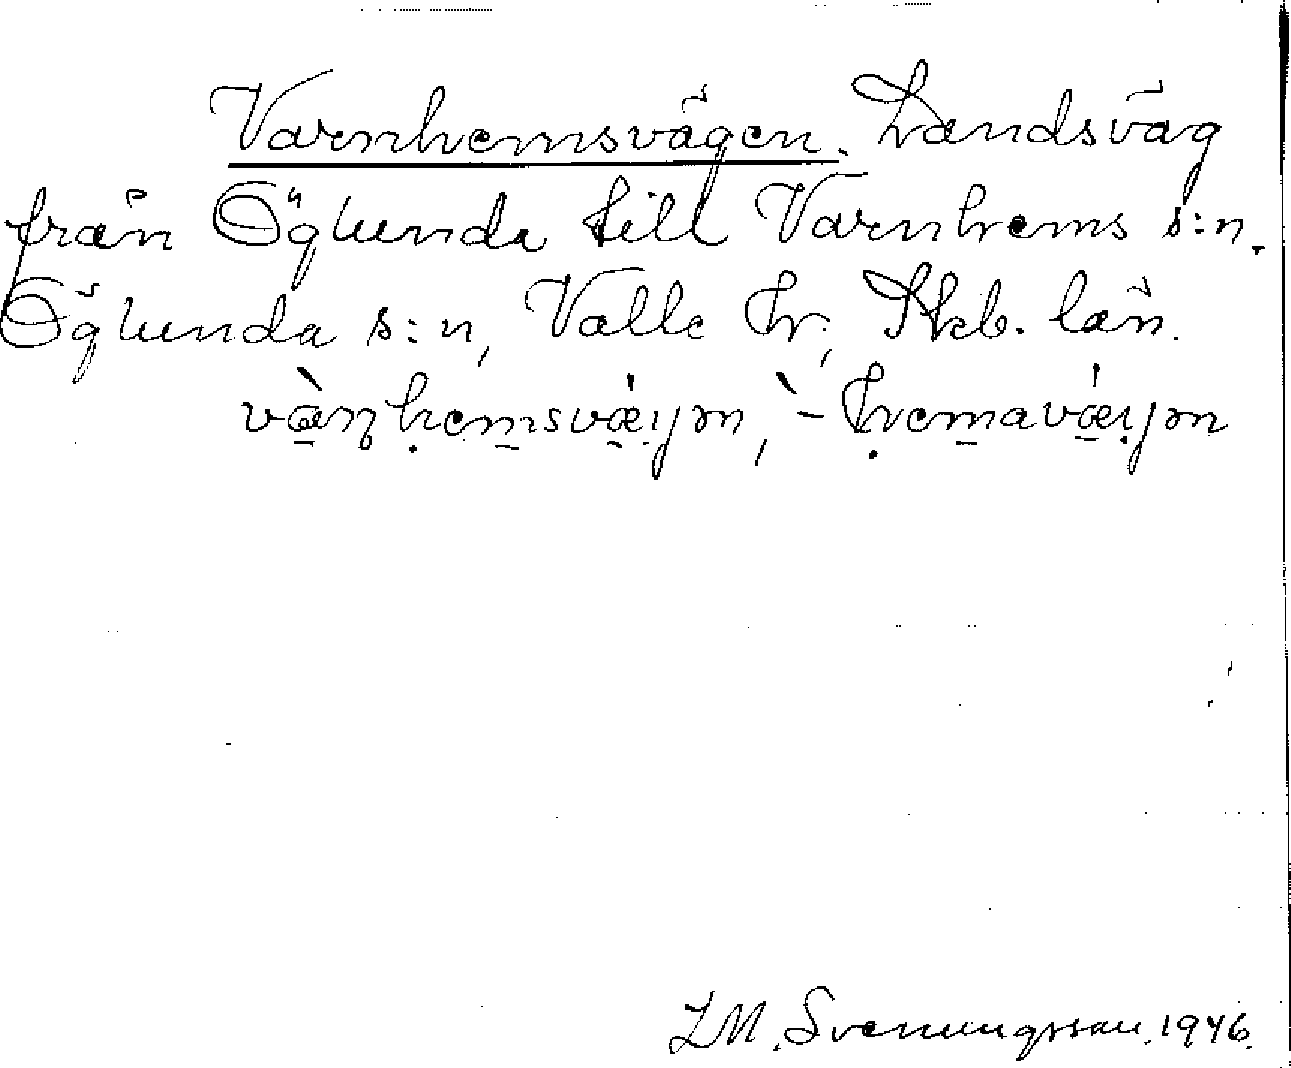 Varnhemsvägen. Landsväg
från Öglunda till Varnhems s:n.
Öglunda s:n, Valle hr, Skb. län.
I.M. Svenungsson. 1946.